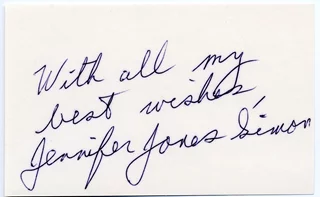 With all my
best wishes,
Jennifer Jones Simon